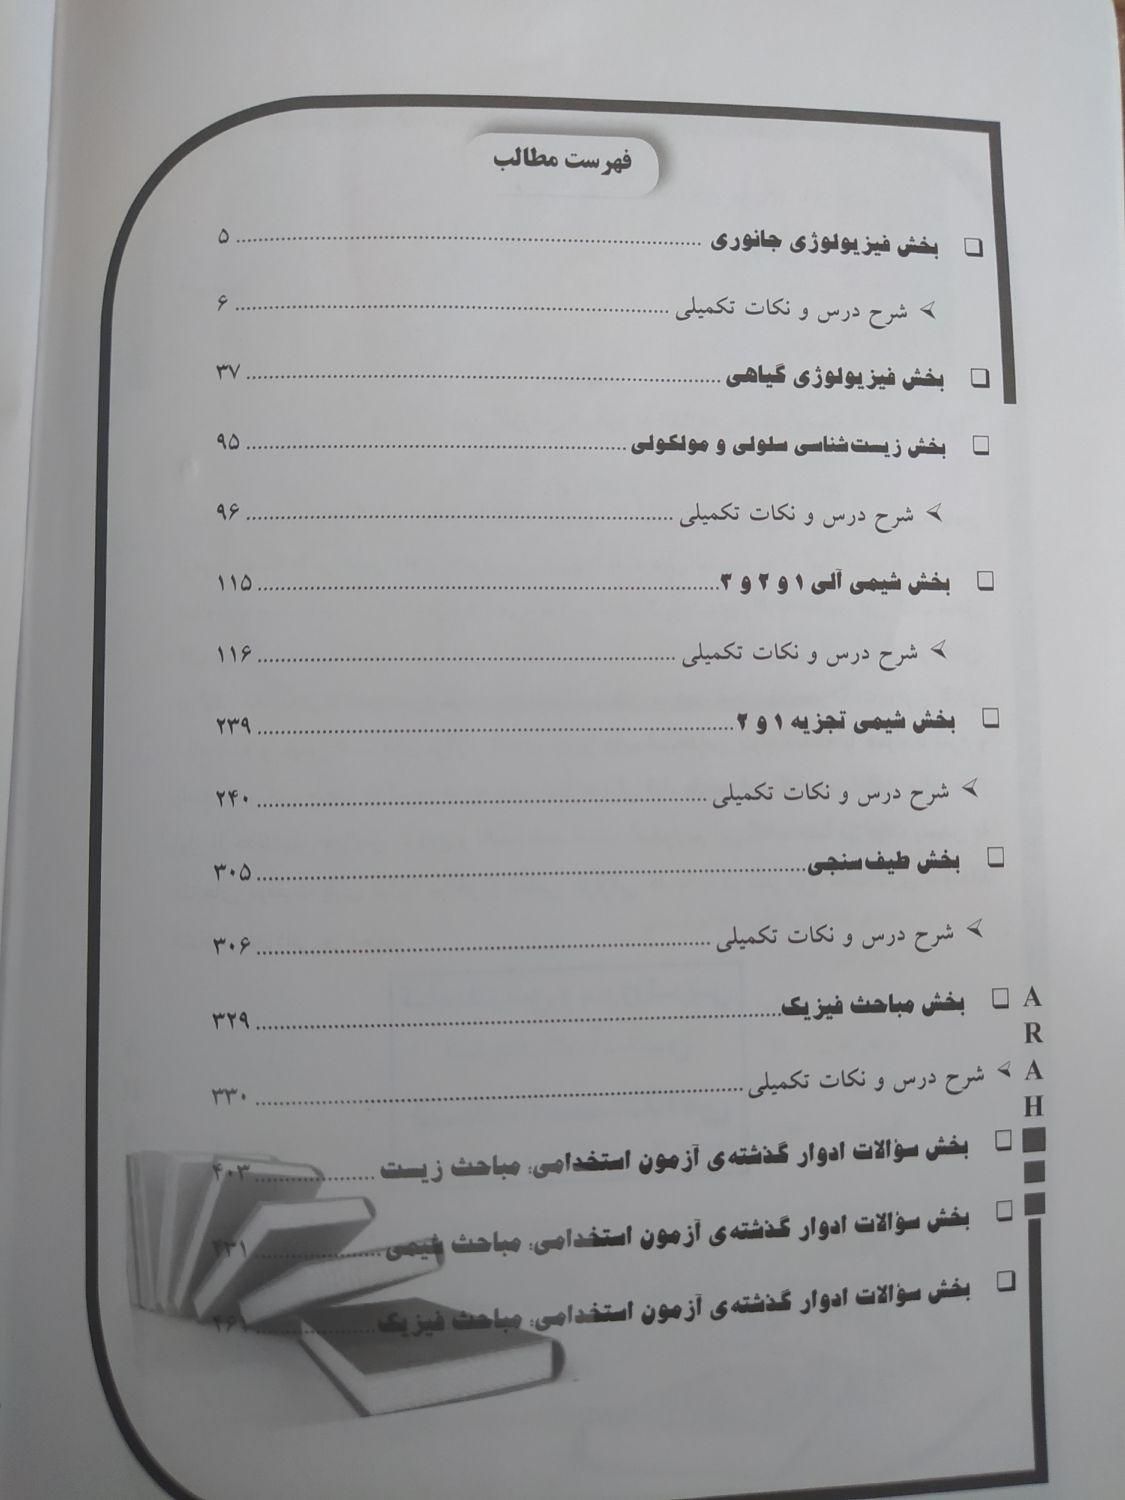 فهرست مطالب
❑ بخش فیزیولوژی جانوری ........ ۵
➢ شرح درس و نکات تکمیلی ........ ۶
❑ بخش فیزیولوژی گیاهی ........ ۳۷
❑ بخش زیست‌شناسی سلولی و مولکولی ........ ۹۵
➢ شرح درس و نکات تکمیلی ........ ۹۶
❑ بخش شیمی آلی ۱ و ۲ و ۳ ........ ۱۱۵
➢ شرح درس و نکات تکمیلی ........ ۱۱۶
❑ بخش شیمی تجزیه ۱ و ۲ ........ ۲۳۹
➢ شرح درس و نکات تکمیلی ........ ۲۴۰
❑ بخش طیف‌سنجی ........ ۳۰۵
➢ شرح درس و نکات تکمیلی ........ ۳۰۶
❑ بخش مباحث فیزیک ........ ۳۲۹
➢ شرح درس و نکات تکمیلی ........ ۳۳۰
❑ بخش سؤالات ادوار گذشته‌ی آزمون استخدامی: مباحث زیست ........ ۴۰۳
❑ بخش سؤالات ادوار گذشته‌ی آزمون استخدامی: مباحث شیمی ........ ۴۳۱
❑ بخش سؤالات ادوار گذشته‌ی آزمون استخدامی: مباحث فیزیک ........
A
R
A
H